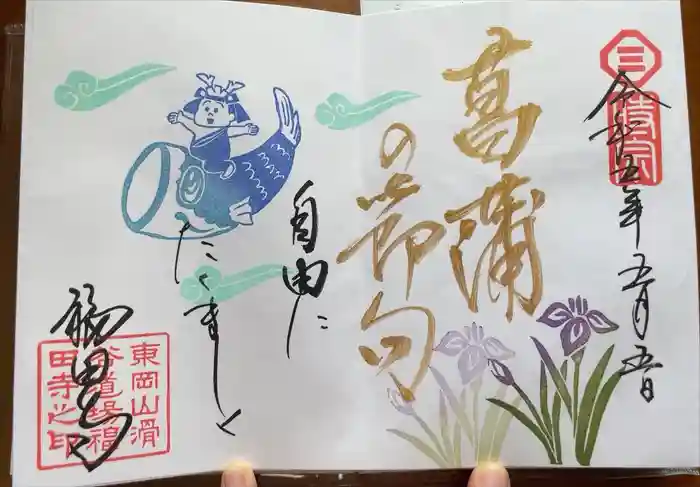 三
令和五年五月五日
菖蒲
の節句
自由に
たくましく
福田寺
東岡山滑
谷道場福
田寺之印